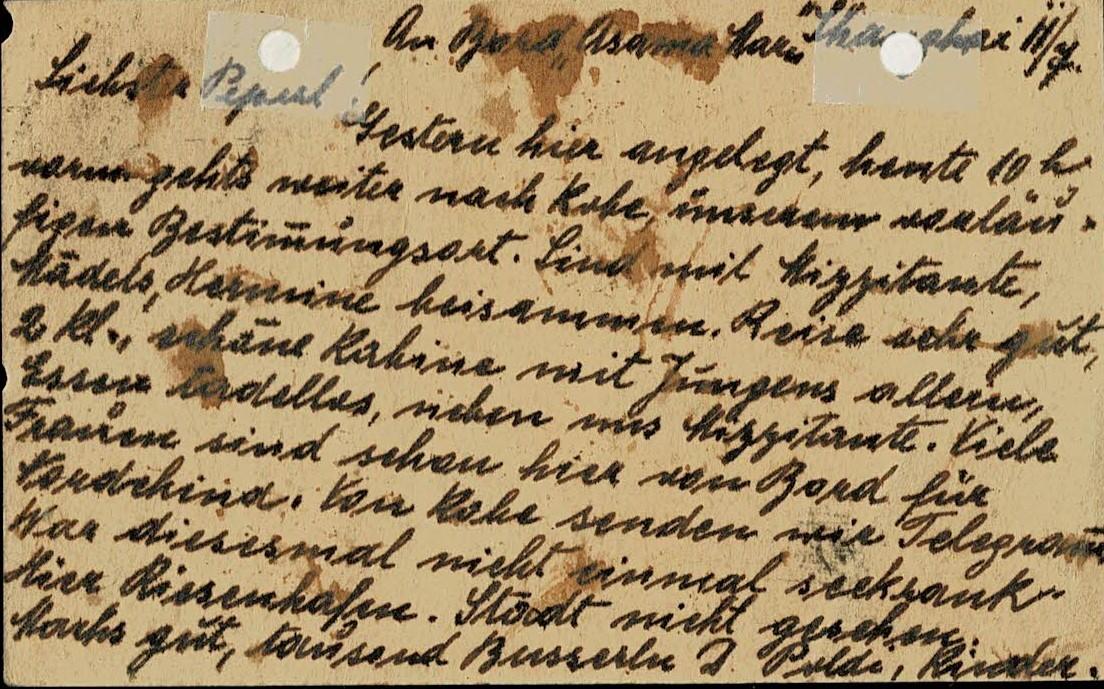 An Bord „Asama Maru" Shanghai 11/7.
Liebster Peperl!
Gestern hier angelegt, heute 10 h
vorm gehts weiter nach Kobe, unserem vorläu-
figen Bestimmungsort. Sind mit Mizzitante,
Mädels, Hermine beisammen. Reise sehr gut,
2 Kl., schöne Kabine mit Jungens allein,
Essen tadellos, neben uns Mizzitante. Viele
Frauen sind schon hier von Bord für
Nordchina. Von Kobe senden wir Telegramm
War diesesmal nicht einmal seekrank.
Hier Riesenhafen. Stadt nicht gesehen.
Machs gut, tausend Busserln D Poldi, Kinder.